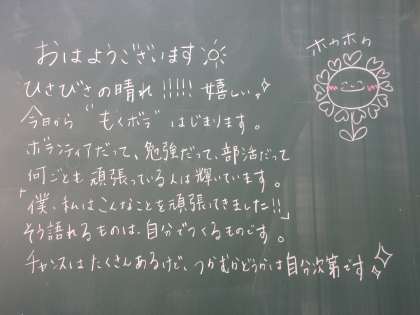 おはようございます
ホカホカ
ひさびさの晴れ!!!!! 嬉しい
今日から"もくボラ"はじまります。
ボランティアだって、勉強だって、部活だって
何ごとも頑張っている人は輝いています。
「僕、私はこんなことを頑張ってきました!!」
そう語れるものは、自分でつくるものです。
チャンスはたくさんあるけど、つかむかどうかは自分次第です